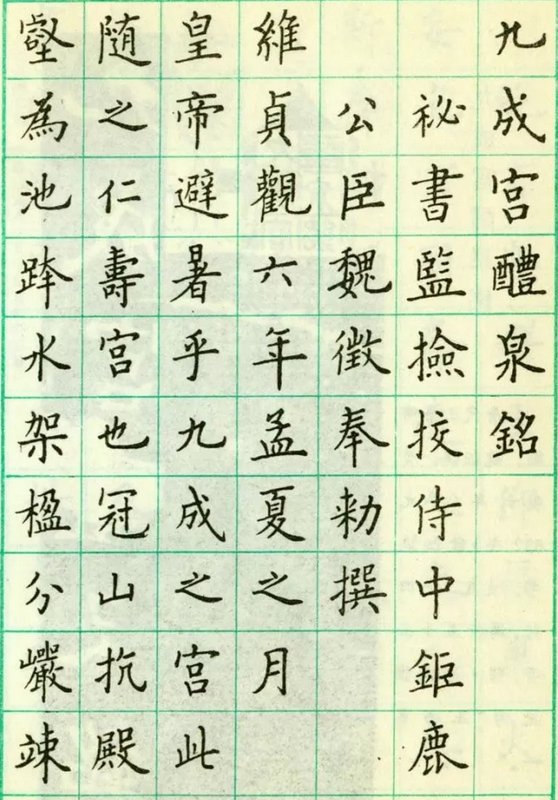 九成宮醴泉銘
祕書監撿挍侍中鉅鹿
公臣魏徵奉勑撰
維貞觀六年孟夏之月
皇帝避暑乎九成之宮此
随之仁壽宮也冠山抗殿
壑為池跨水架楹分巗竦